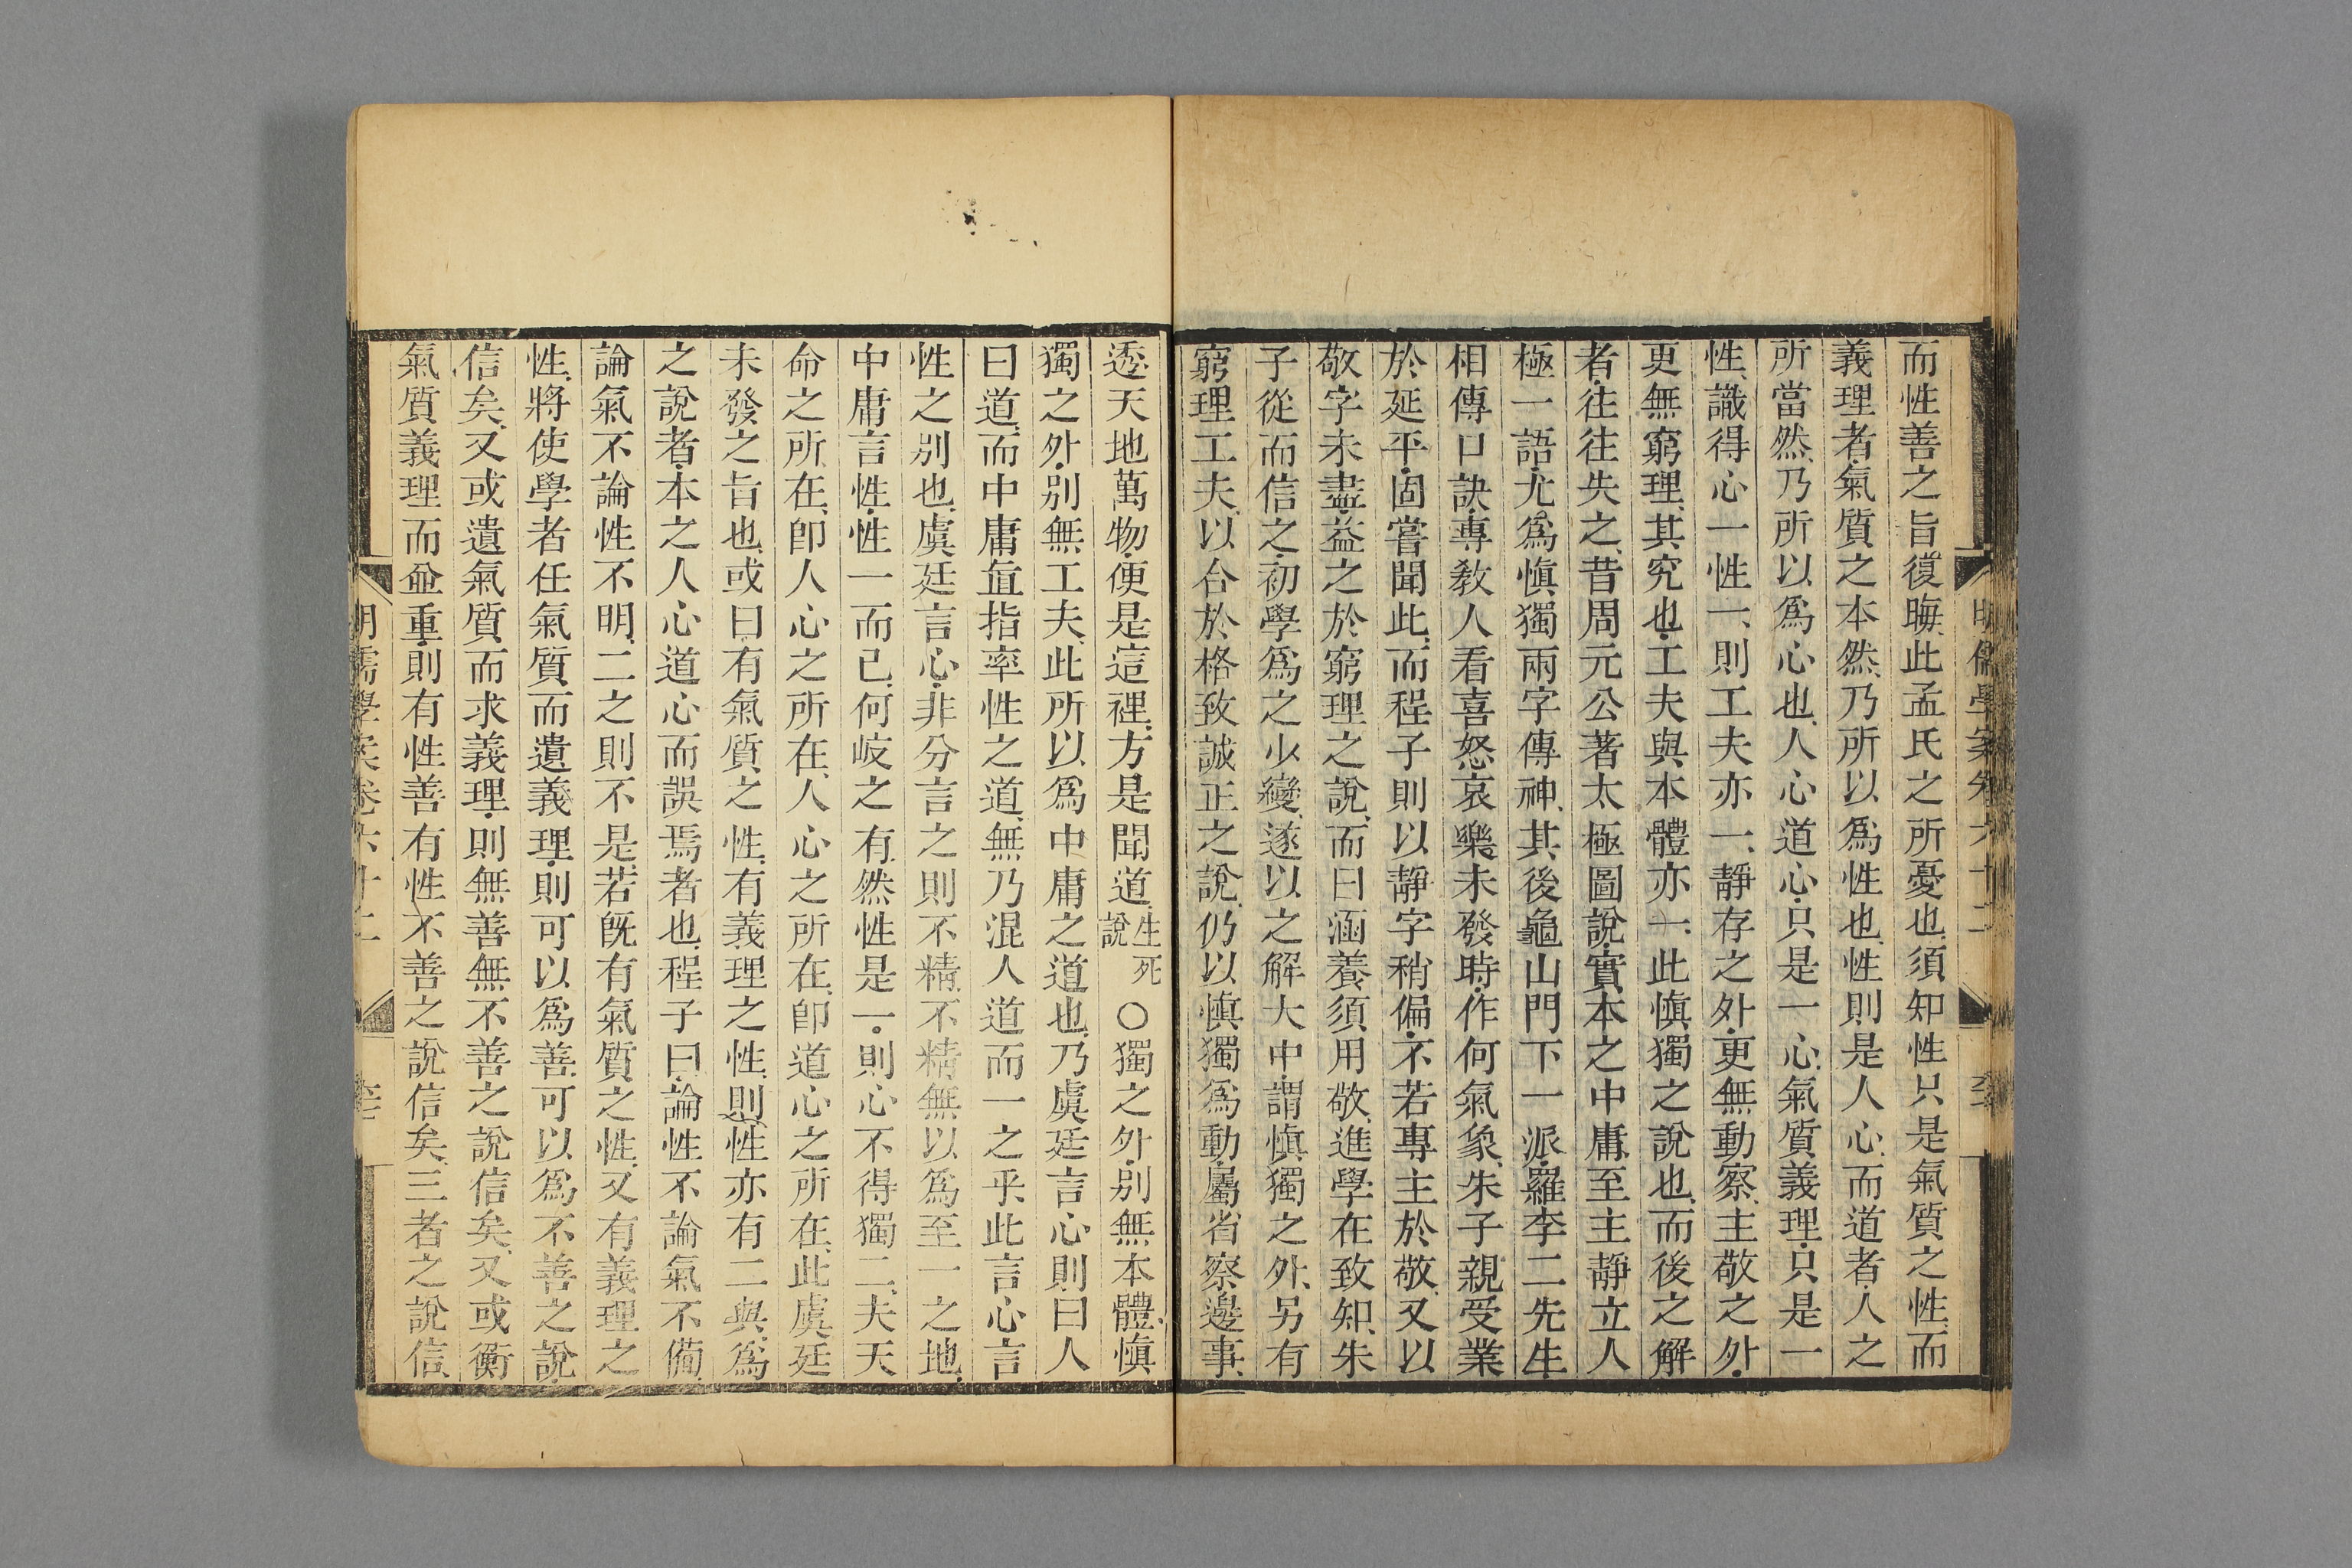 明儒學案卷六十二
而性善之旨復晦此孟氏之所憂也須知性只是氣質之性而
義理者氣質之本然乃所以爲性也性則是人心而道者人之
所當然乃所以爲心也人心道心只是一心氣質義理只是一
性識得心一性一則工夫亦一靜存之外更無動察主敬之外
更無窮理其究也工夫與本體亦一此慎獨之說也而後之解
者往往失之昔周元公著太極圖說實本之中庸至主靜立人
極一語尤爲慎獨兩字傳神其後龜山門下一派羅李二先生
相傳口訣專教人看喜怒哀樂未發時作何氣象朱子親受業
於延平固嘗聞此而程子則以靜字稍偏不若專主於敬又以
敬字未盡益之於窮理之說而曰涵養須用敬進學在致知朱
子從而信之初學爲之少變遂以之解大中謂慎獨之外另有
窮理工夫以合於格致誠正之說仍以慎獨爲動屬省察邊事
透天地萬物便是這裡方是聞道生死說○獨之外別無本體慎
獨之外別無工夫此所以爲中庸之道也乃虞廷言心則曰人
曰道而中庸直指率性之道無乃混人道而一之乎此言心言
性之别也虞廷言心非分言之則不精不精無以爲至一之地
中庸言性性一而已何岐之有然性是一則心不得獨二夫天
命之所在即人心之所在人心之所在即道心之所在此虞廷
未發之旨也或曰有氣質之性有義理之性則性亦有二與爲
之說者本之人心道心而誤焉者也程子曰論性不論氣不備
論氣不論性不明二之則不是若既有氣質之性又有義理之
性將使學者任氣質而遺義理則可以爲善可以爲不善之說
信矣又或遺氣質而求義理則無善無不善之說信矣又或衡
氣質義理而並重則有性善有性不善之說信矣三者之說信
明儒學案卷六十二